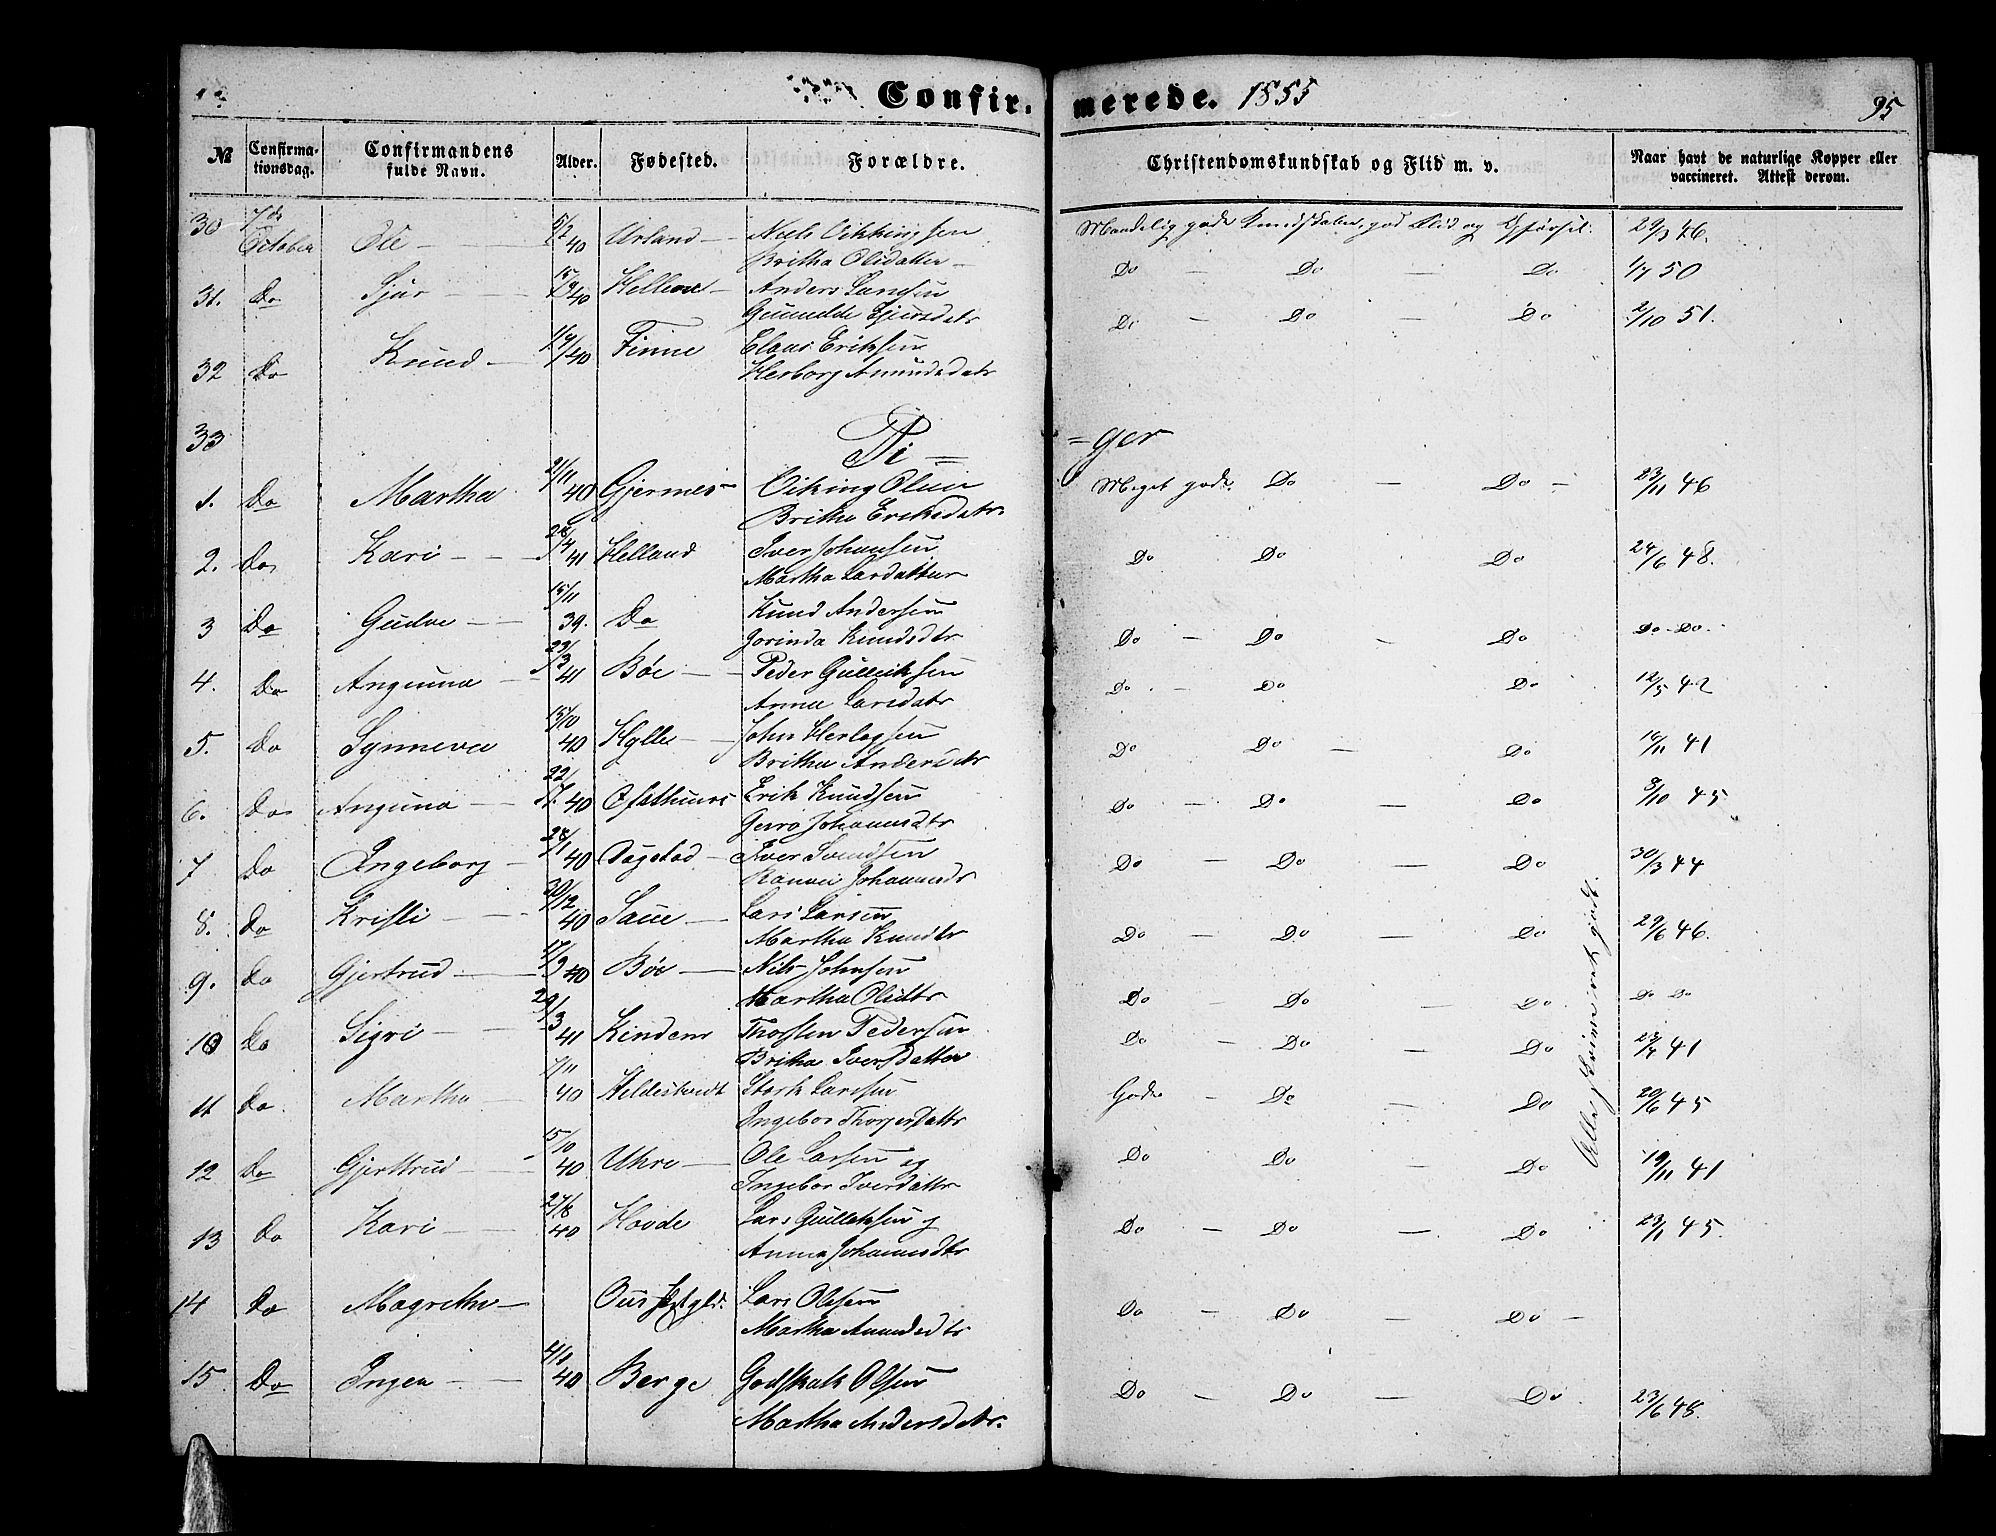 Confir- merede. 1855
95
№ Confirma-tionsdag. Confirmandens fulde Navn. Alder. Fødested. Forældre. Christendomskundskab og Flid m. v. Naar havt de naturlige Kopper eller vaccineret. Attest derom.
30 7de October Ole 5/2 40 Urland Niels Vikkingsen Mandelig gode Kundskaber, god Flid og Opførsel. 29/3 46.
Britha Olidatter
31. Do Sjur 40 Anders Larssen Do Do Do 1/7 50
Gunnilde Sjursdatr
32 Do Knud 40 Finne Claus Eriksen Do Do Do 2/10 51.
Herborg Amundsdatr
33
Pi= =ger
1. Do Martha 21/11 40 Gjernes Viking Olsen Meget gode. Do Do 23/11 46
Britha Eriksdatr
2. Do Kari 28/4 41 Helland Iver Johansen Do Do Do 24/6 48.
Martha Larsdatter
3 Do Gudve 15/11 39. Do Knud Andersen Do Do Do Do Do.
Jorinda Knudsdtr
4. Do Angunna 29/3 41 Bøe Peder Gulleiksen Do Do Do 12/5 42
Anna Larsdatr
5. Do Synneva 15/10 40 Hylle John Herlogsen Do Do Do 16/11 41
Britha Andersdtr
6. Do Anguna 22/ 40 Erik Knudsen Do Do Do 8/10 45
Johannesdtr
7 Do Ingeborg 28/1 40 Dagstad Iver Svendsen Do Do Do 30/3 44
Johannesdr
8. Do Kristi 30/12 40 Saue Lars Larsen Do Do Do 29/6 46.
Martha Knudtr
9. Do Gjertrud 17/9 40 Bøe Nils Johnsen Do Do Do Do Do
Martha Olidtr
10 Do Sigri 29/3 41 Kindem Thorsten Pedersen Do Do Do 23/7 41
Britha Iversdatter
11 Do. Martha 7/11 40 Larssen Gode Do Do 20/6 45
Ingebor
12 Do Gjerttrud 15/10 40 Uhre Ole Larsen og Do Do Do 19/11 41
Ingebor Iverdattr
13 Do Kari 27/8 40 Hovde Lars Gulleksen og Do Do Do 23/1 45.
Anna Johannesdtr
14 Do Magrethe Lars Olesen Do Do Do
Martha Amundsdtr
15 Do Inger 40 Berge Godskalk Olsen Do Do Do 23/6 48.
Martha Andersdatr.
Alle skrive ret godt.